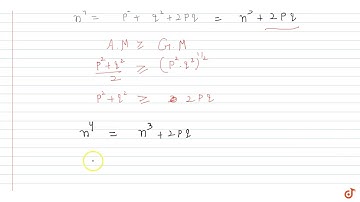 n⁴ = p² + q² + 2pq = n³ + 2pq
A.M ≥ G.M
p² + q² / 2 ≥ (p² · q²)^1/2
p² + q² ≥ 2pq
n⁴ = n³ + 2pq